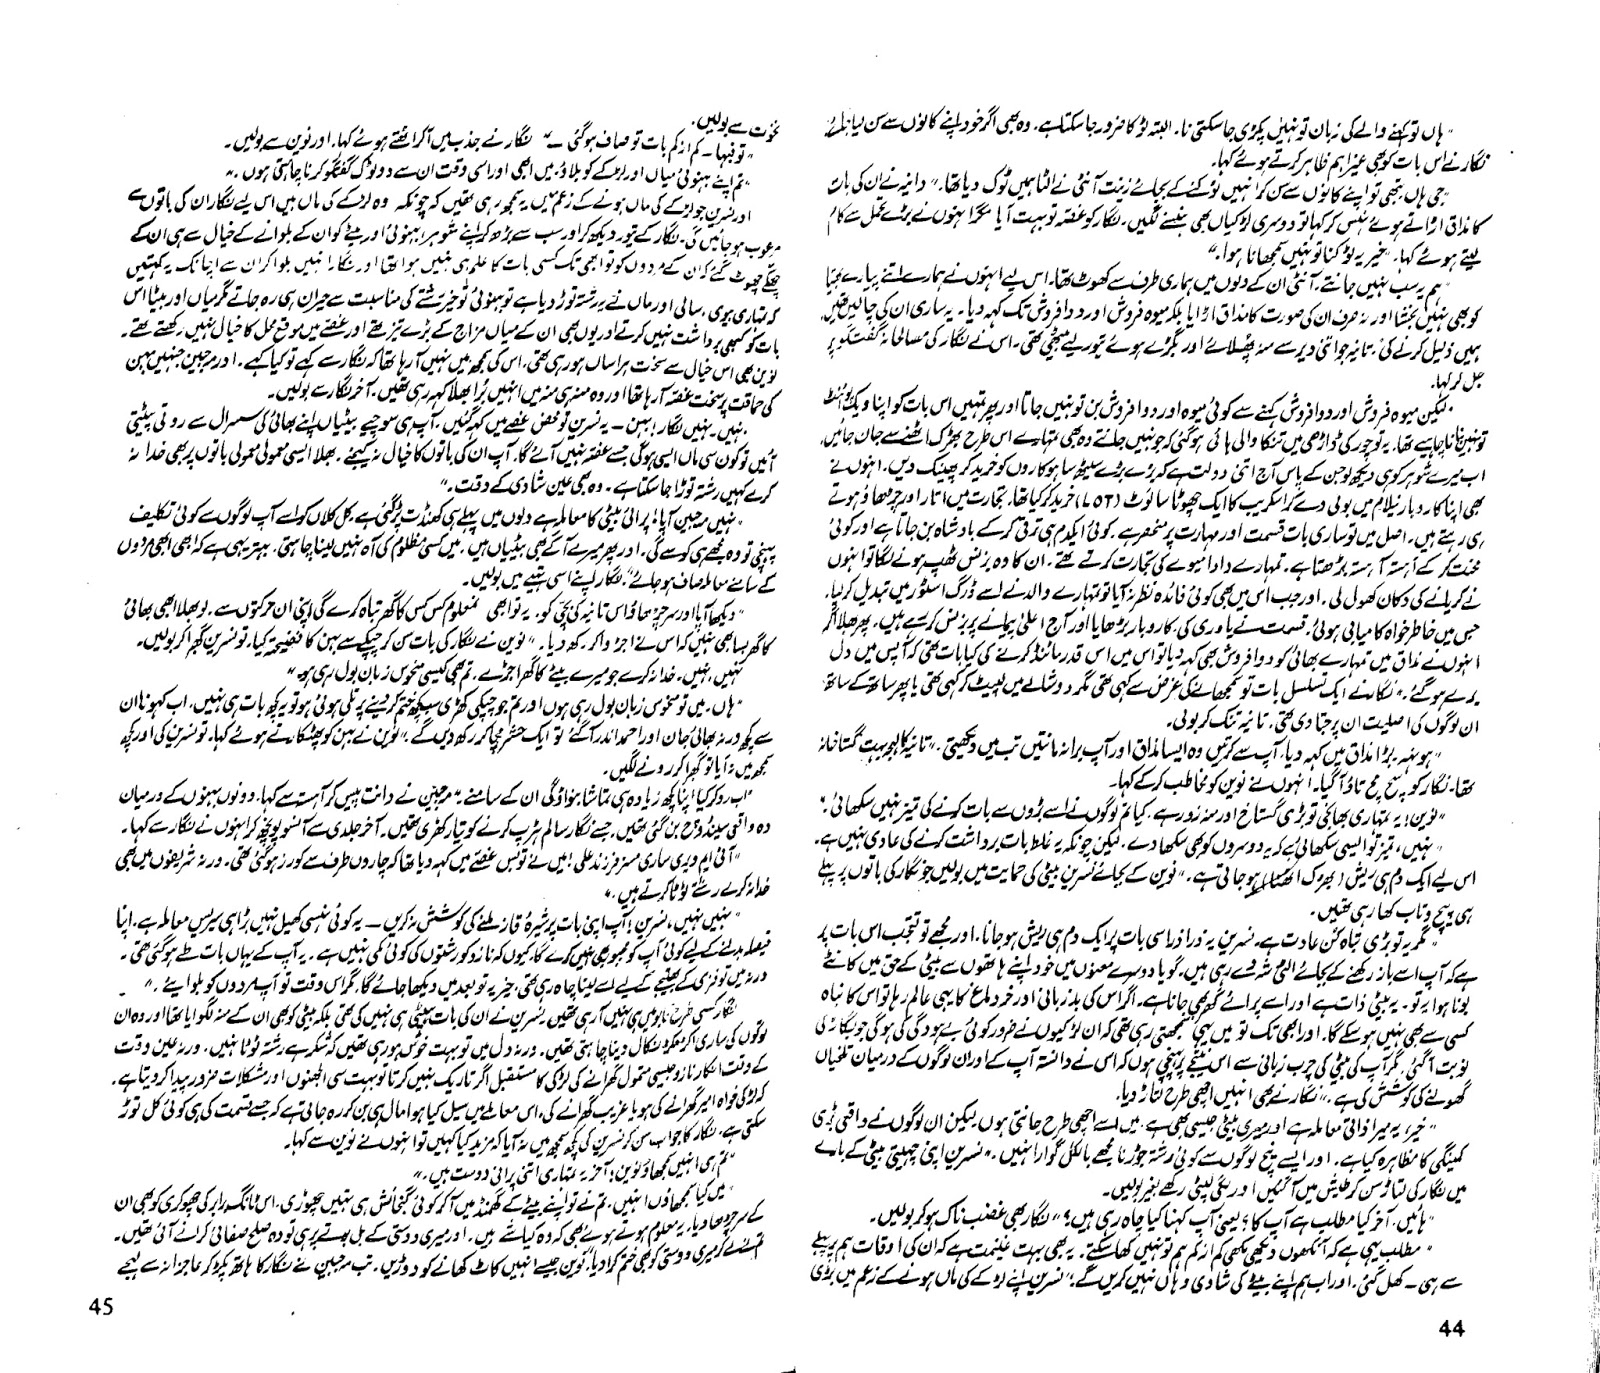 "ہاں تو کہنے والے کی زبان تو نہیں پکڑی جاسکتی نا۔ البتہ ٹوکا ضرور جاسکتا ہے۔ وہ بھی اگر خود اپنے کانوں سے سن لیا جائے
نگار نے اس بات کو بھی غیر اہم ظاہر کرتے ہوئے کہا۔
"جی ہاں بھی تو اپنے کانوں سے سن کر انہیں ٹوکنے کے بجائے زینت آنٹی نے الٹا ہمیں ٹوک دیا تھا۔" دانیہ نے ان کی بات
کا مذاق اڑاتے ہوئے ہنس کر کہا تو دوسری لڑکیاں بھی ہنسنے لگیں۔ نگار کو غصہ تو بہت آیا مگر انہوں نے بڑے تحمل سے کام
لیتے ہوئے کہا۔ "خیر یہ ٹوکنا تو نہیں سمجھانا ہوا۔"
"ہم یہ سب نہیں جانتے۔ آنٹی ان کے دلوں میں ہماری طرف سے کھوٹ تھا۔ اس لیے انہوں نے ہمارے اتنے پیارے بھیا
کو بھی نہیں بخشا اور نہ صرف ان کی صورت کا مذاق اڑایا بلکہ میوہ فروش اور دوا فروش تک کہہ دیا۔ یہ ساری ان کی چالیں تھیں
ہمیں ذلیل کرنے کی۔" تانیہ جو اتنی دیر سے منہ پھلائے اور بگڑے ہوئے تیور لیے بیٹھی تھی۔ اس نے نگار کی مصالحانہ گفتگو پر
جل کر کہا۔
"لیکن میوہ فروش اور دوا فروش کہنے سے کوئی میوہ اور دوا فروش بن تو نہیں جاتا اور پھر تمہیں اس بات کو اپنا ویک پوائنٹ
تو نہیں بنانا چاہیے تھا۔ یہ تو چور کی ڈاڑھی میں تنکا والی بات ہو گئی کہ جو نہیں جانتے وہ بھی تمہارے اس طرح بھڑک اٹھنے سے جان جائیں۔
اب میرے شوہر کو ہی دیکھ لو جن کے پاس آج اتنی دولت ہے کہ بڑے بڑے سیٹھ ساہوکاروں کو خرید کر پھینک دیں۔ انہوں نے
بھی اپنا کاروبار نیلام میں بولی دے کر اسکریپ کا ایک چھوٹا سا لوٹ (LOT) خرید کر کیا تھا۔ تجارت میں اتار اور چڑھاؤ ہوتے
ہی رہتے ہیں۔ اصل میں تو ساری بات قسمت اور مہارت پر منحصر ہے۔ کوئی ایکدم ہی ترقی کر کے بادشاہ بن جاتا ہے اور کوئی
محنت کر کے آہستہ آہستہ بڑھتا ہے۔ تمہارے دادا میوے کی تجارت کرتے تھے۔ ان کا وہ بزنس ٹھپ ہونے لگا تو انہوں
نے کریانے کی دکان کھول لی۔ اور جب اس میں بھی کوئی فائدہ نظر نہ آیا تو تمہارے والد نے اسے ڈرگ اسٹور میں تبدیل کر لیا۔
جس میں خاطر خواہ کامیابی ہوئی۔ قسمت نے یاوری کی۔ کاروبار بڑھایا اور آج اعلیٰ پیمانے پر بزنس کر رہے ہیں۔ پھر بھلا اگر
انہوں نے مذاق میں تمہارے بھائی کو دوا فروش بھی کہہ دیا تو اس میں اس قدر مائنڈ کرنے کی کیا بات تھی کہ آپس میں دل
برے ہو گئے۔" نگار نے ایک تسلسل بات تو سمجھانے کی غرض سے کہی تھی مگر دوشالے میں لپیٹ کر کہی تھی یا پھر ساتھ کے ساتھ
ان لوگوں کی اصلیت ان پر جتا دی تھی۔ تانیہ تنک کر بولی۔
"ہونہہ۔ بڑا مذاق میں کہہ دیا۔ آپ سے کرتیں وہ ایسا مذاق اور آپ برا نہ مانتیں تب میں دیکھتی۔" تانیہ کا لہجہ بہت گستاخانہ
تھا۔ نگار کو سچ مچ تاؤ آگیا۔ انہوں نے نوین کو مخاطب کر کے کہا۔
"نوین! یہ تمہاری بھانجی تو بڑی گستاخ اور منہ زور ہے۔ کیا تم لوگوں نے اسے بڑوں سے بات کرنے کی تمیز نہیں سکھائی۔"
"نہیں، تمیز تو ایسی سکھائی ہے کہ یہ دوسروں کو بھی سکھا دے۔ لیکن چونکہ یہ غلط بات برداشت کرنے کی عادی نہیں ہے۔
اس لیے ایک دم ہی ریش (بھڑک اٹھنا) ہو جاتی ہے۔" نوین کے بجائے نسرین بیٹی کی حمایت میں بولیں جو نگار کی باتوں پر پہلے
ہی پیچ و تاب کھا رہی تھیں۔
"مگر یہ تو بڑی تباہ کن عادت ہے۔ نسرین یہ ذرا ذرا سی بات پر ایک دم ہی ریش ہو جانا۔ اور مجھے تو تعجب اس بات پر
ہے کہ آپ اسے باز رکھنے کے بجائے الٹی شہ دے رہی ہیں۔ گویا دوسرے معنوں میں خود اپنے ہاتھوں سے بیٹی کے حق میں کانٹے
بونا ہوا یہ تو۔ یہ بیٹی ذات ہے اور اسے پرائے گھر بھی جانا ہے۔ اگر اس کی بد زبانی اور خر دماغی کا یہی عالم رہا تو اس کا نباہ
کسی سے بھی نہیں ہو سکے گا۔ اور ابھی تک تو میں یہی سمجھتی رہی تھی کہ ان لڑکیوں نے ضرور کوئی بے ہودگی کی ہوگی جو بگاڑ کی
نوبت آگئی۔ مگر آپ کی بیٹی کی چرب زبانی سے اس نتیجے پر پہنچی ہوں کہ اس نے دانستہ آپ کے اور ان لوگوں کے درمیان تلخیاں
گھولنے کی کوشش کی ہے۔" نگار نے بھی انہیں اچھی طرح لتاڑ دیا۔
"خیر، یہ میرا ذاتی معاملہ ہے اور میری بیٹی جیسی بھی ہے۔ میں اسے اچھی طرح جانتی ہوں لیکن ان لوگوں نے واقعی بڑی
کمینگی کا مظاہرہ کیا ہے۔ اور ایسے پیچ لوگوں سے کوئی رشتہ جوڑنا مجھے بالکل گوارا نہیں۔" نسرین اپنی چہیتی بیٹی کے بارے
میں نگار کی لتاڑ سن کر طیش میں آگئیں اور لگی لپٹی رکھے بغیر بولیں۔
"ہائیں۔ آخر کیا مطلب ہے آپ کا؟ یعنی آپ کہنا کیا چاہ رہی ہیں؟" نگار بھی غضب ناک ہو کر بولیں۔
"مطلب یہی ہے کہ آنکھوں دیکھی مکھی کم از کم ہم تو نہیں کھا سکتے۔ یہ بھی بہت غنیمت ہے کہ ان کی اوقات ہم پر پہلے
سے ہی — کھل گئی۔ اور اب ہم اپنے بیٹے کی شادی وہاں نہیں کریں گے۔" نسرین اپنے لڑکے کی ماں ہونے کے زعم میں بڑی
44
نخوت سے بولیں۔
"تو فبہا — کم از کم بات تو صاف ہو گئی —" نگار نے جذب میں آکر اٹھتے ہوئے کہا۔ اور نوین سے بولیں۔
"تم اپنے بہنوئی میاں اور لڑکے کو بلاؤ۔ میں ابھی اور اسی وقت ان سے دو ٹوک گفتگو کرنا چاہتی ہوں۔"
اور نسرین جو لڑکے کی ماں ہونے کے زعم میں یہ سمجھ رہی تھیں کہ چونکہ وہ لڑکے کی ماں ہیں اس لیے نگار ان کی باتوں سے
مرعوب ہو جائیں گی۔ نگار کے تیور دیکھ کر اور سب سے بڑھ کر اپنے شوہر، بہنوئی اور بیٹے کو ان کے بلوانے کے خیال سے ہی ان کے
چھکے چھوٹ گئے کہ ان کے مردوں کو تو ابھی تک کسی بات کا علم ہی نہیں ہوا تھا اور نگار انہیں بلوا کر ان سے اچانک یہ کہتیں
کہ تمہاری بیوی، سالی اور ماں نے یہ رشتہ توڑ دیا ہے تو بہنوئی تو خیر رشتے کی مناسبت سے حیران ہی رہ جاتے مگر میاں اور بیٹا اس
بات کو کبھی برداشت نہیں کرتے اور یوں بھی ان کے میاں مزاج کے بڑے تیز تھے اور غصے میں موقع محل کا خیال نہیں رکھتے تھے۔
نوین بھی اس خیال سے سخت ہراساں ہو رہی تھی۔ اس کی سمجھ میں نہیں آ رہا تھا کہ نگار سے کہے تو کیا کہے۔ اور مرجبین جنہیں بہن
کی حماقت پر سخت غصہ آ رہا تھا اور وہ منہ ہی منہ میں انہیں برا بھلا کہہ رہی تھیں۔ آخر نگار سے بولیں۔
"نہیں۔ نہیں نگار! بہن — یہ نسرین تو محض غصے میں کہہ گئیں۔ آپ ہی سوچیے بیٹیاں اپنے بھائی کی سسرال سے روتی پیٹتی
آئیں تو کون سی ماں ایسی ہوگی جسے غصہ نہیں آئے گا۔ آپ ان کی باتوں کا خیال نہ کیجئے۔ بھلا ایسی معمولی معمولی باتوں پر بھی خدا نہ
کرے کہیں رشتہ توڑا جاسکتا ہے۔ وہ بھی عین شادی کے وقت۔"
"نہیں مرجبین آپا! پرائی بیٹی کا معاملہ ہے دلوں میں پہلے سے ہی کھنڈت پڑ گئی ہے۔ کل کلاں کو اسے آپ لوگوں سے کوئی تکلیف
پہنچی تو وہ مجھے ہی کوسے گی۔ اور پھر میرے آگے بھی بیٹیاں ہیں۔ میں کسی مظلوم کی آہ نہیں لینا چاہتی۔ بہتر یہی ہے کہ ابھی ابھی مردوں
کے سامنے معاملہ صاف ہو جائے" نگار اپنے اسی تہیے میں بولیں۔
"دیکھا آپا! اور سر چڑھاؤ اس تانیہ کی بچی کو۔ یہ تو ابھی نہ معلوم کس کس کا گھر تباہ کرے گی اپنی ان حرکتوں سے۔ لو بھلا ابھی بھائی
کا گھر بسا بھی نہیں کہ اس نے اجڑوا کر رکھ دیا۔" نوین نے نگار کی بات سن کر چپکے سے بہن کا فضیحتہ کیا۔ تو نسرین گھبرا کر بولیں۔
"نہیں، نہیں۔ خدا نہ کرے جو میرے بیٹے کا گھر اجڑے۔ تم بھی کیسی منحوس زبان بول رہی ہو"
"ہاں۔ میں تو منحوس زبان بول رہی ہوں اور تم جو چپکی کھڑی سب کچھ ختم کر دینے پر تلی ہوئی ہو تو یہ کچھ بات ہی نہیں۔ اب کہو نا ان
سے کچھ ورنہ بھائی جان اور احمد اندر آگئے تو ایک حشر مچا کر رکھ دیں گے۔" نوین نے بہن کو پھٹکارتے ہوئے کہا۔ تو نسرین کی اور کچھ
سمجھ میں نہ آیا تو گھبرا کر رونے لگیں۔
"اب رو کر کیا اپنا کچھ زیادہ ہی تماشا بنواؤ گی ان کے سامنے" مرجبین نے دانت پیس کر آہستہ سے کہا۔ دونوں بہنوں کے درمیان
وہ واقعی سینڈوچ بن گئی تھیں۔ جسے نگار سالم ہڑپ کرنے کو تیار کھڑی تھیں۔ آخر جلدی سے آنسو پونچھ کر انہوں نے نگار سے کہا۔
"آئی ایم ویری ساری مسز فرزند علی! میں نے تو بس غصے میں کہہ دیا تھا کہ چاروں طرف سے کورز ہو گئی تھی۔ ورنہ شریفوں میں بھی
خدا نہ کرے رشتے ٹوٹا کرتے ہیں۔"
"نہیں نہیں، نسرین! آپ اپنی بات پر شیرۂ قاز ملنے کی کوشش نہ کریں — یہ کوئی ہنسی کھیل نہیں بڑا ہی سیریس معاملہ ہے۔ اپنا
فیصلہ بدلنے کے لیے کوئی آپ کو مجبور بھی نہیں کرے گا۔ کیوں کہ نازو کو رشتوں کی کوئی کمی نہیں ہے۔ یہ آپ کے یہاں بات طے ہو گئی تھی۔
ورنہ میں تو نزی کے بھتیجے کے لیے اسے لینا چاہ رہی تھی۔ خیر یہ تو بعد میں دیکھا جائے گا۔ مگر اس وقت تو آپ مردوں کو بلوائیے۔"
نگار کسی طرح قابو میں ہی نہیں آ رہی تھیں۔ نسرین نے ان کی بات پیٹی ہی نہیں کی تھی بلکہ بیٹی کو بھی ان کے منہ لگوایا تھا اور وہ ان
لوگوں کی ساری اکڑ مکڑ نکال دینا چاہتی تھیں۔ ورنہ دل میں تو بہت خوش ہو رہی تھیں کہ شکر ہے رشتہ ٹوٹا نہیں۔ ورنہ عین وقت
کے وقت انکار نازو جیسی متمول گھرانے کی لڑکی کا مستقبل اگر تاریک نہیں کرتا تو بہت سی الجھنوں اور مشکلات ضرور پیدا کر دیتا ہے۔
کہ لڑکی خواہ امیر گھرانے کی ہو یا غریب گھرانے کی۔ اس معاملے میں سیل کیا ہوا مال ہی بن کر رہ جاتی ہے کہ جسے قسمت کی ہی کوئی کل توڑ
سکتی ہے۔ نگار کا جواب سن کر نسرین کی کچھ سمجھ میں نہ آیا کہ مزید کیا کہیں تو انہوں نے نوین سے کہا۔
"تم ہی انہیں سمجھاؤ نوین! آخر یہ تمہاری اتنی پرانی دوست ہیں۔"
"میں کیا سمجھاؤں انہیں۔ تم نے تو اپنے بیٹے کے گھمنڈ میں آکر کوئی گنجائش ہی نہیں چھوڑی۔ اس ٹانگ برابر کی چھوکری کو بھی ان
کے سر چڑھا دیا۔ یہ معلوم ہوتے ہوئے بھی کہ وہ کیا شے ہیں۔ اور میری دوستی کے بل بوتے پر ہی تو وہ صلح صفائی کرانے آئی تھیں۔
تم نے کر میری دوستی کو بھی ختم کرا دیا۔" نوین جیسے انہیں کاٹ کھانے کو دوڑیں۔ تب مرجبین نے نگار کا ہاتھ پکڑ کر عاجزانہ سے لہجے
45